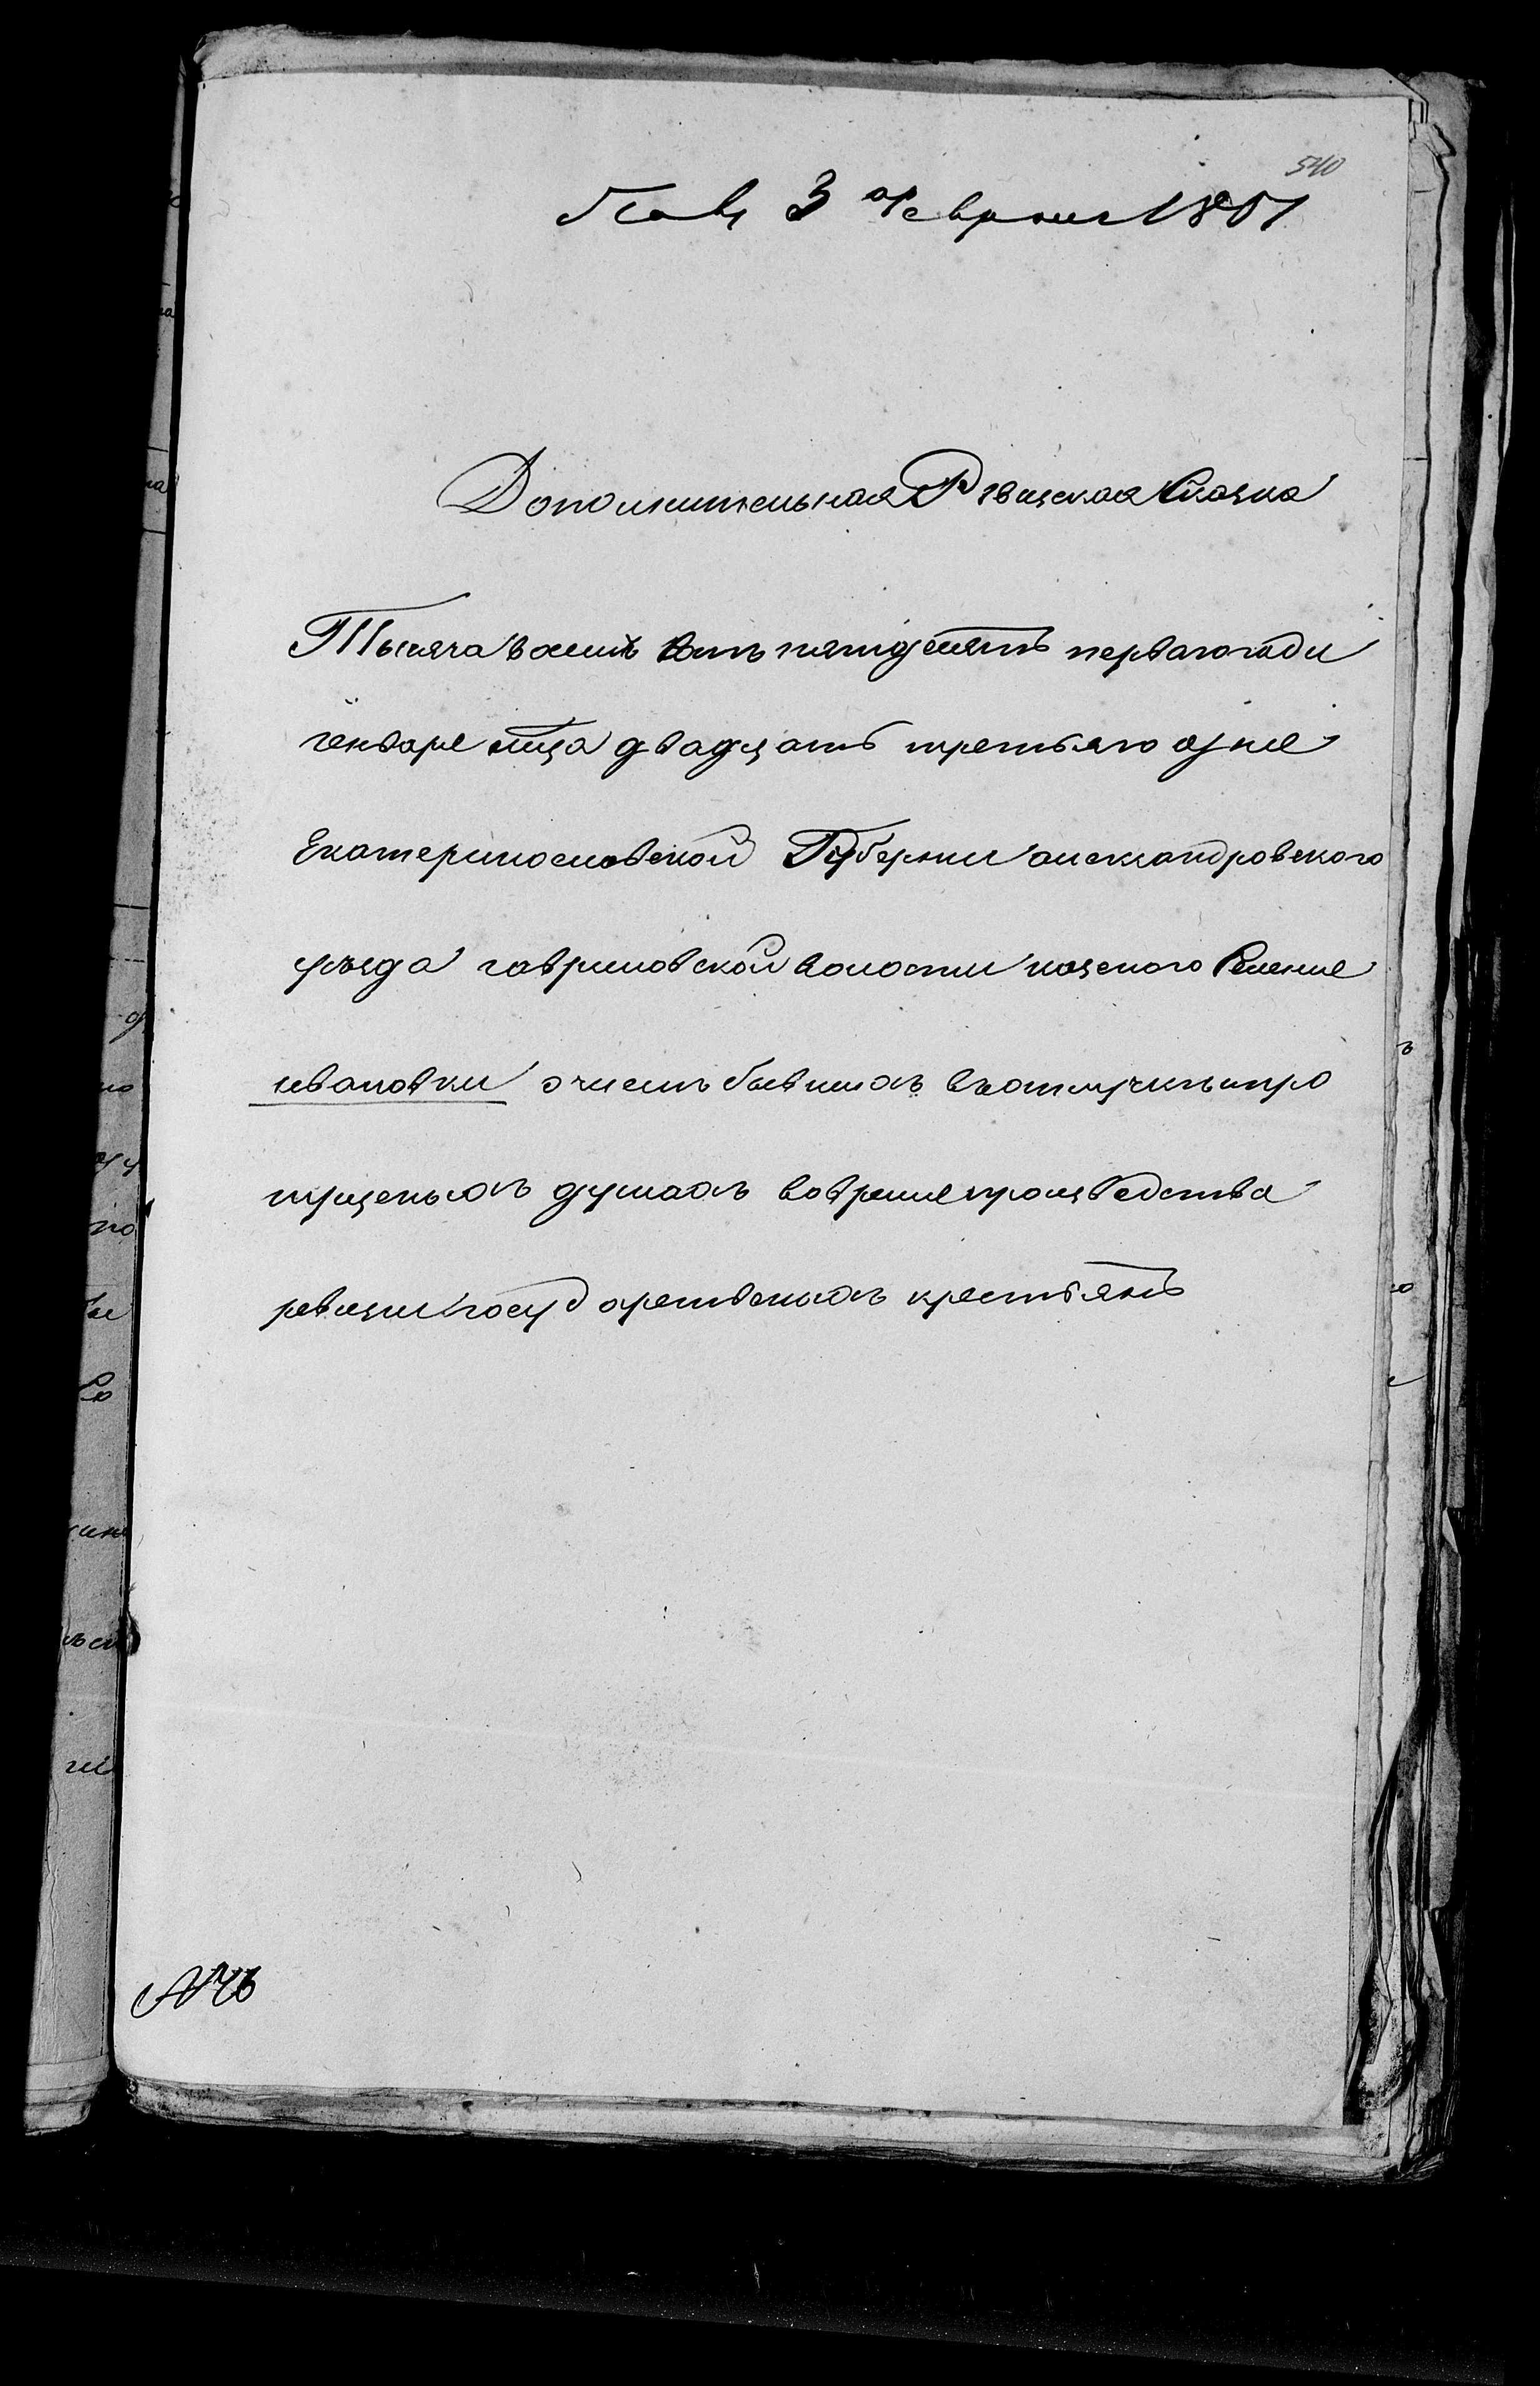 540
3 февраля 1851
Дополнительная Ревизская Сказка
Тысяча восемъ сотъ пятдесятъ первого года
генваря мца двадцать третьяго дня
Екатеринославской Губернии александровского
уезда гавриловской волости казеного Селения
ивановки очислъ бывшихъ вотлучкъ и про
пущеныхъ душахъ вовремя произведства
ревизии государственыхъ крестьянъ